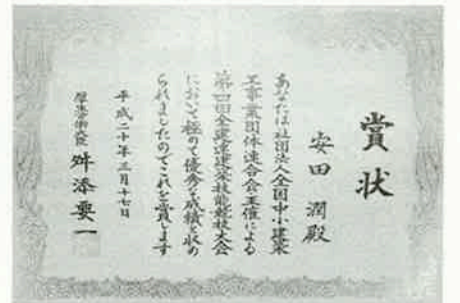 賞状
安田 潤殿
あなたは社団法人全国中小建築
工事業団体連合会主催による
第四回全建連建築技能競技大会
において極めて優秀な成績を収め
られましたのでこれを賞します
平成二十年三月十七日
厚生労働大臣 舛添要一